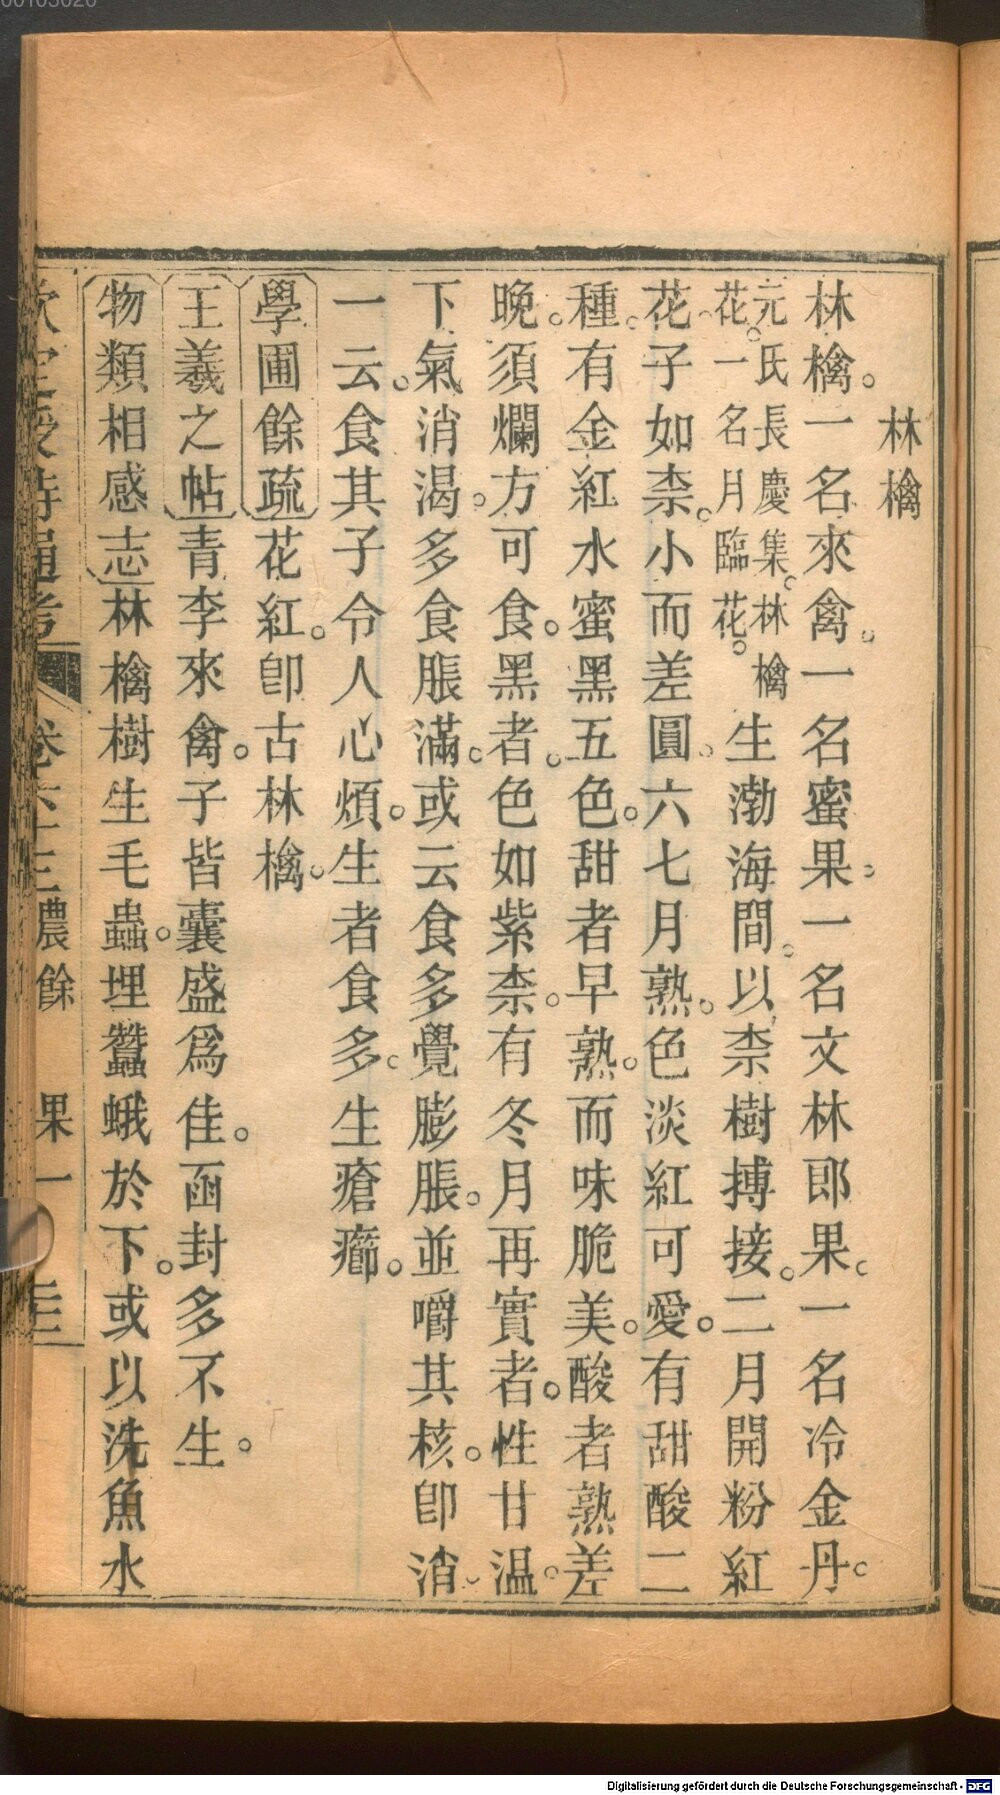 林檎
林檎。一名來禽。一名蜜果。一名文林郎果。一名冷金丹。
元氏長慶集。林檎
花。一名月臨花。
生渤海間。以柰樹搏接。二月開粉紅
花。子如柰。小而差圓。六七月熟。色淡紅可愛。有甜酸二
種。有金紅水蜜黑五色。甜者早熟。而味脆美。酸者熟差
晚。須爛方可食。黑者。色如紫柰。有冬月再實者。性甘温。
下氣消渴。多食脹滿。或云食多覺膨脹。並嚼其核。卽消。
一云。食其子令人心煩。生者食多。生瘡癤。
學圃餘疏花紅。卽古林檎。
王羲之帖青李來禽。子皆囊盛爲佳。函封多不生。
物類相感志林檎樹生毛蟲。埋蠶蛾於下。或以洗魚水
欽定授時通考 卷六十三農餘 果一 圭
Digitalisierung gefördert durch die Deutsche Forschungsgemeinschaft - DFG